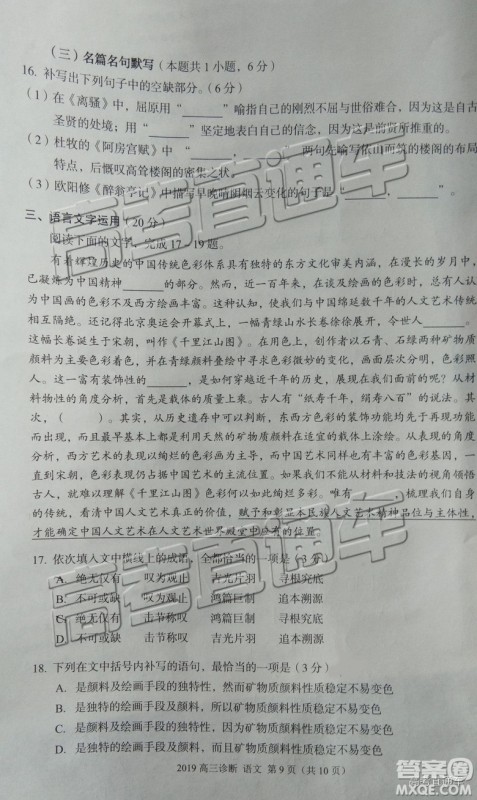 （三）名篇名句默写（本题共1小题，6分）
16. 补写出下列句子中的空缺部分。（6分）
（1）在《离骚》中，屈原用“______”喻指自己的刚烈不屈与世俗难合，因为这是自古
圣贤的处境；用“______”坚定地表白自己的信念，因为这是前贤所推重的。
（2）杜牧的《阿房宫赋》中“______，______”两句先喻写依山而筑的楼阁的布局
特点，后慨叹高耸楼阁的密集之状。
（3）欧阳修《醉翁亭记》中描写早晚晴明烟云变化的句子是“______，______”。
三、语言文字运用（20分）
阅读下面的文字，完成17～19题。
有着辉煌历史的中国传统色彩体系具有独特的东方文化审美内涵，在漫长的岁月中，
已凝炼为中国精神______的部分。然而，近一百年来，在谈及绘画的色彩时，总有人认为中
国画的色彩不及西方油画丰富。这种认知，使我们与中国绵延数千年的人文艺术传统
相互隔绝。还记得北京奥运会开幕式上，一幅青绿山水长卷徐徐展开，令世人______。
这幅长卷诞生于宋代，叫作《千里江山图》。在用色上，创作者以石青、石绿两种矿物质
颜料为主要色彩着色，并在青绿颜料叠绘中寻求色彩微妙的变化，画面层次分明，色如宝石。
这一富有装饰性的______，是如何穿越近千年的历史，展现在我们面前的呢？从材
料物性的角度分析，首先是载体的质量。中国古代有“纸寿千年，绢寿八百”的说法。其
次，（　　）。其实，从历史遗存中可以判断，东西方艺术的色彩的装饰功能均先于再现功
能而出现，它们都是采用天然的矿物质颜料在适宜的载体上涂绘。从表现的角度
分析，西方艺术的表现以绚烂的色彩为主，中国艺术的表现亦有绚烂的色彩呈现，
直到宋朝，色彩表现仍占据中国艺术的主流位置。如果我们不能从材料和技法的视角领悟
古人，就难以理解《千里江山图》色彩何以如此绚烂多彩。唯有______，梳理我们自己的
人文艺术传统，看清中国人文艺术发展的方向，赋予和彰显本民族人文艺术精神品位与主体性，
才能确定中国人文艺术在人文艺术世界殿堂中应有的位置。
17. 依次填入文中横线上的成语，全都恰当的一项是（3分）
A. 绝无仅有　叹为观止　吉光片羽　寻根究底
B. 不可或缺　叹为观止　鸿篇巨制　追本溯源
C. 绝无仅有　击节称叹　鸿篇巨制　追本溯源
D. 不可或缺　击节称叹　吉光片羽　寻根究底
18. 下列在文中括号内补写的语句，最恰当的一项是（3分）
A. 是颜料及绘画手段的独特性，然而矿物质颜料性质稳定不易变色
B. 是颜料及绘画手段的独特性，所以矿物质颜料性质稳定不易变色
C. 是颜料及绘画手段的独特性，因为矿物质颜料性质稳定不易变色
D. 是颜料及绘画手段的独特性，而且矿物质颜料性质稳定不易变色
2019高三诊断 语文 第9页（共10页）
高考直通车
高考直通车
高考直通车
答案圈
MXQE.COM